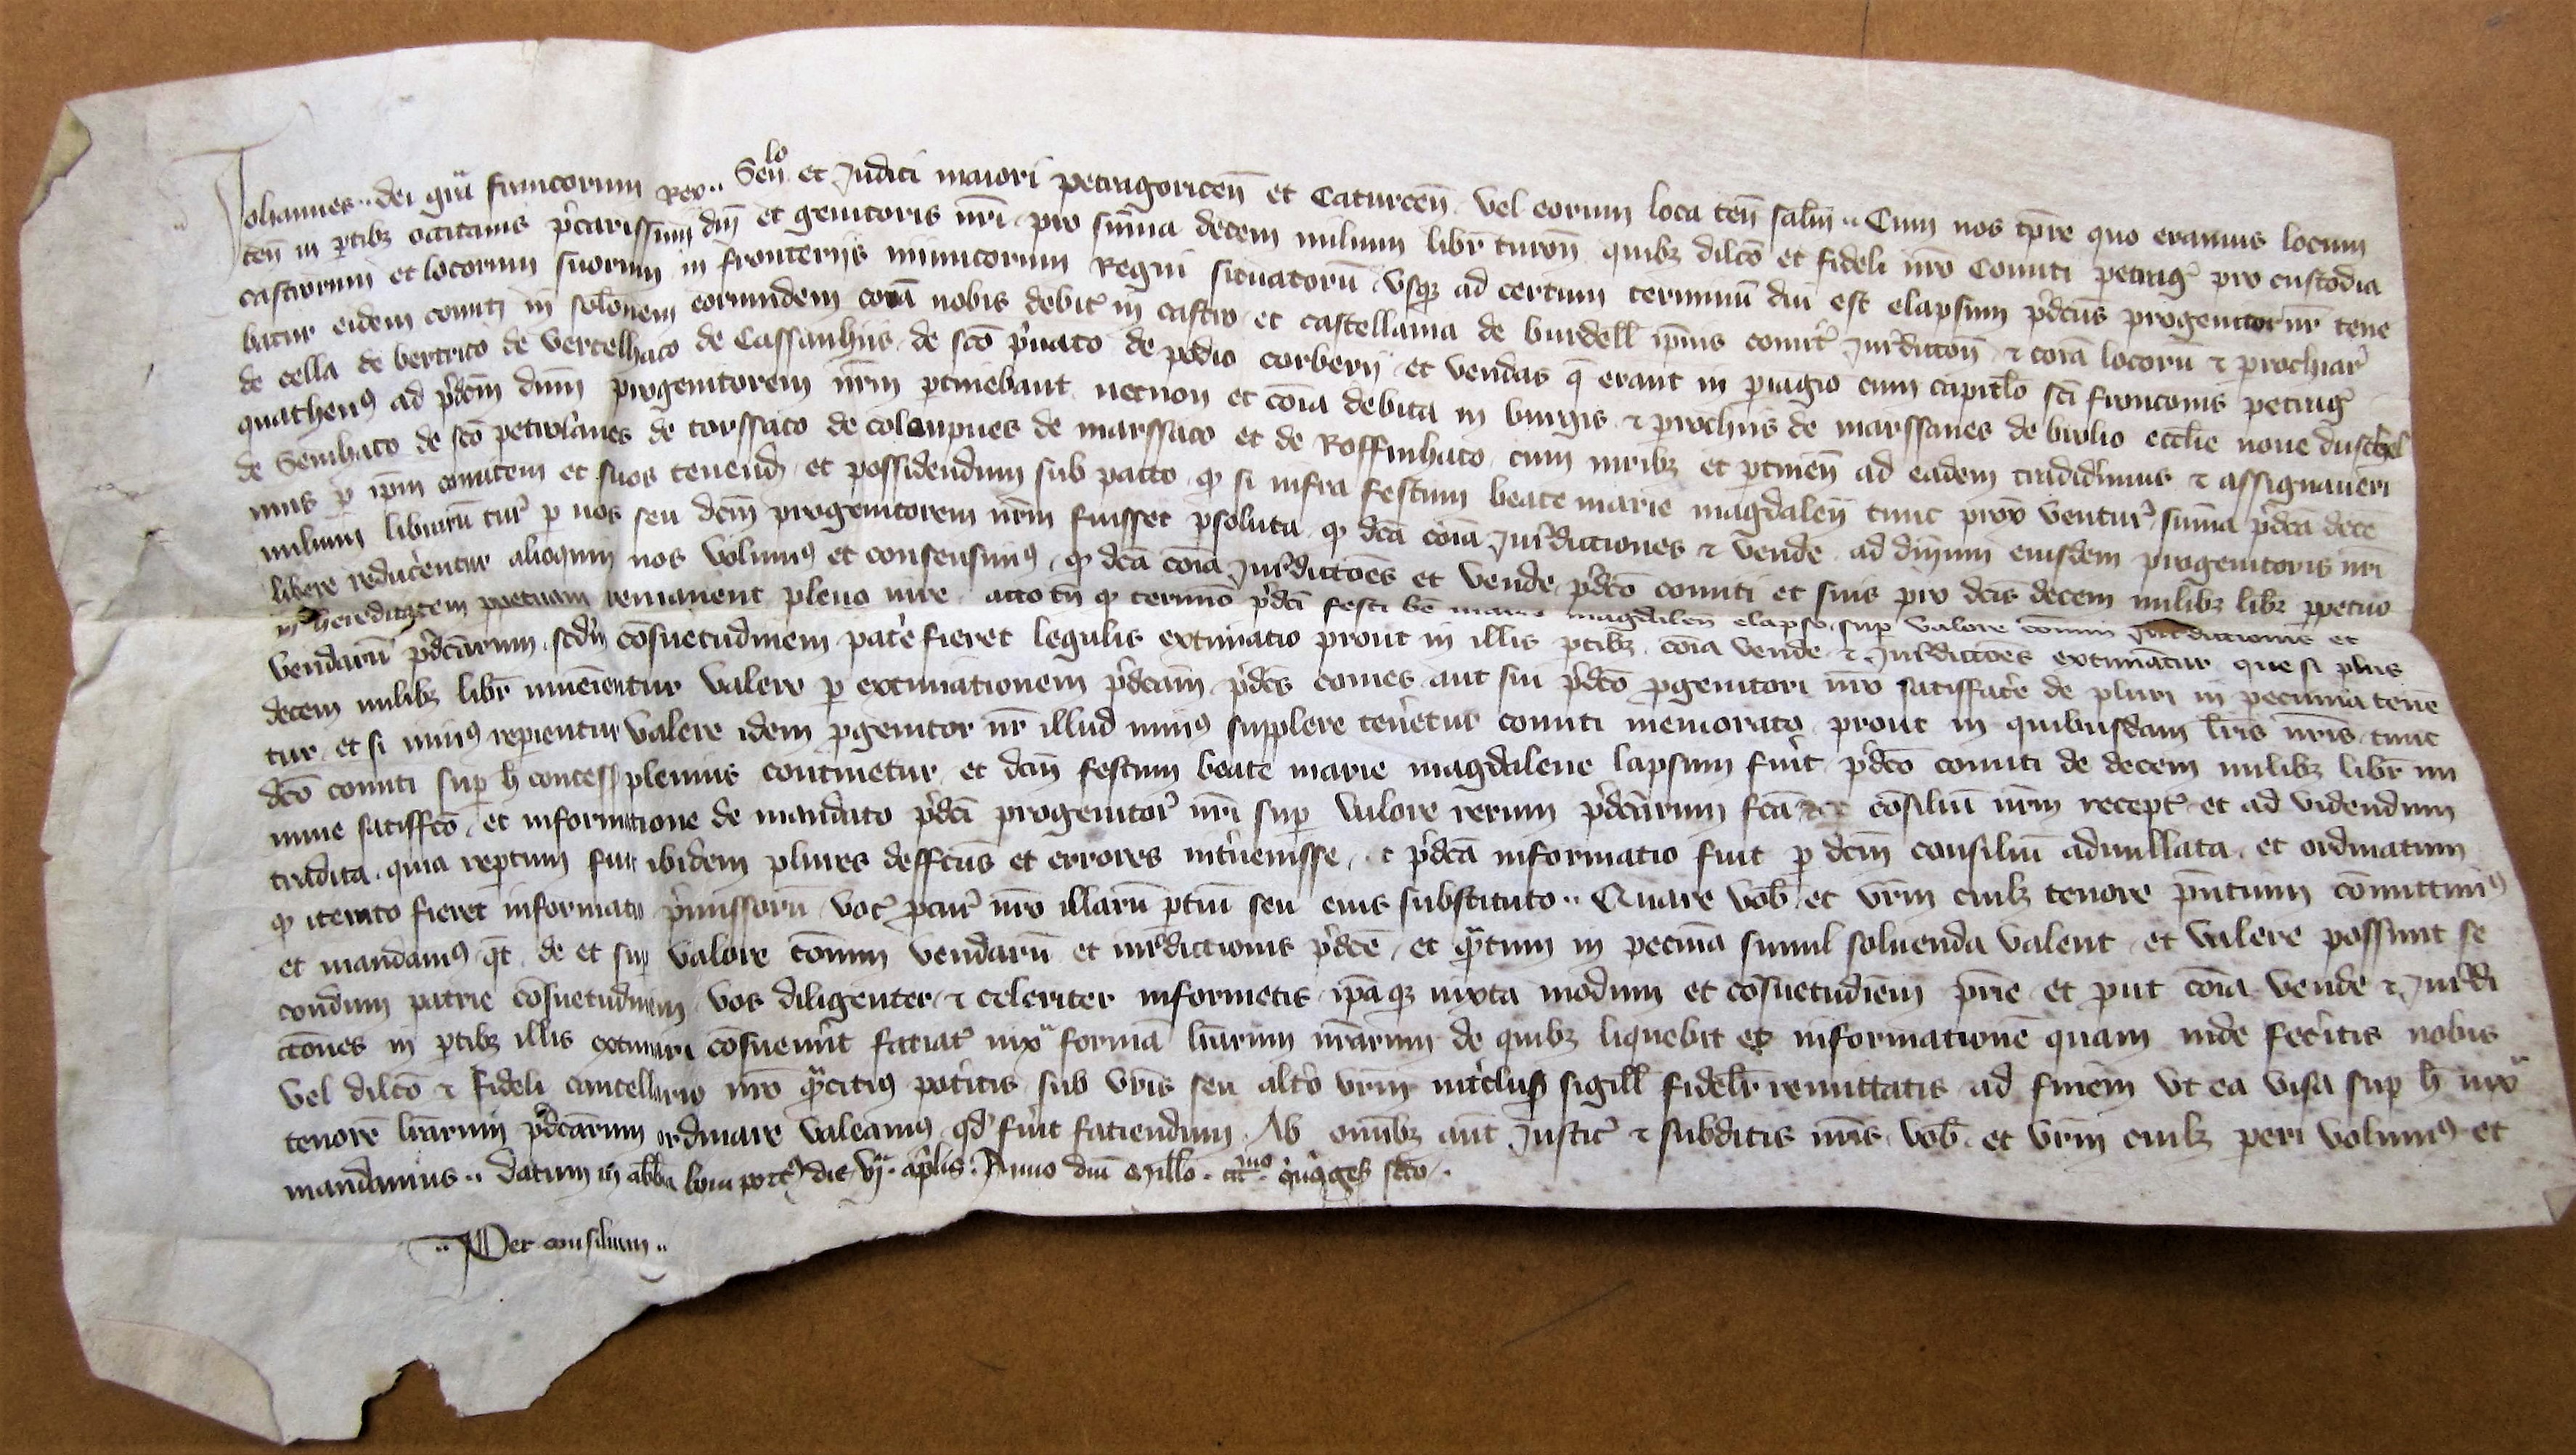 Johannes dei gra francorum Rex Sen lo et Judici maiori petragoricen et Caturcen vel eorum loca ten salm Cum nos tpre quo eramus locum
ten in ptibz occitanis pcarissimi dni et genitoris nri pro suma decem milium libr turon quibz dilco et fideli nro Comiti petrag pro custodia
castrorum et locorum suorum in fronteriis inimicorum Regni situatoru usqz ad certum terminu diu est elapsum pdcus progenitor nr tene
batur eidem comiti in soloem eorumdem coia nobis debit in castro et castellania de burdell ipius comit Jurdiction et coia locoru et prochiar
de cella de bertrico de vercelhaco de Cassanhiis de sco puato de podio corberii et vendas q erant in piagio cum capitlo sci frontonis petrag
quathenus ad pdcm dnm progenitorem nrm ptinebant necnon et coia debita in burgis et prochiis de marssanes de brolio ecclie noue
de Senihaco de sco petro lanes de corssaco de colonpnes de marssaco et de Roffinhaco cum iuribz et ptinen ad eadem tradidimus et assignaueri
mus p ipm comitem et suos tenend et possidendum sub pacto q si infra festum beate marie magdalen tunc prox ventur suma pdca dece
milium libraru tur p nos seu dcm progenitorem nrm fuisset psoluta q dca coia Jurdictiones et vende ad dnium eiusdem progenitoris nri
libere reducerentur alioquin nos volumus et consensimus q dca coia Jurdictoes et vende pdco comiti et suis pro dcis decem milibz libr ppetuo
in hereditatem ppetuam remanent pleno iure acto tn q termino pdci festi be marie magdalen elapso sup valore comun Jurdictionis et
vendaru pdcarum scdm cosuetudinem patrie fieret legalis extimatio prout in illis ptibz coia vende et Jurdictoes extimatur que si plus
decem milibz libr inueirentur valere p extimationem pdcam pdcs comes aut sui pdco pgenitori nro satisffacere de pluri in pecunia tene
tur et si minus repientur valere idem pgenitor nr illud minus supplere teneretur comiti memorato prout in quibusdam lris nris tunc
dco comiti sup h concess plenius continetur et dcm festum beate marie magdalene lapsum fuit pdco comiti de decem milibz libr mi
nime satisffco et informatione de mandato pdci progenitor nri sup valore rerum pdcarum fca consiliu nrm recept et ad videndum
tradita quia reptum fuit ibidem plures deffcus et errores interuenisse et pdca informatio fuit p dcm consiliu adnullata et ordinatum
q iterato fieret informatio pmissoru voc pcur nro illaru ptiu seu eius substituto Quare vob et vrm cuilz tenore pntium comittimus
et mandamus qt de et sup valore comun vendaru et iurdictionis pdce et qtum in pecunia simul soluenda valent et valere possunt se
condum patrie cosuetudinem vos diligenter et celeriter informetis ipaqz iuxta modum et cosuetudiem prie et put coia vende et Jurdi
ctones in ptibz illis extimari cosueuerit faciat iux forma lrarum nrarum de quibz liquebit et informatione quam inde feceritis nobis
vel dilco et fideli cancellario nro qcitius poteritis sub vris seu altero vrm interclus sigill fidelr remittatis ad finem ut ea visa sup h iux
tenore lrarum pdcarum ordinare valeamus qd fuerit faciendum Ab omibz aut Justic et subditis nris vob et vrm cuilz peri volumus et
mandamus Datum in abba die vj aprlis Anno dni Millo ccc mo qnqges scdo
Per consilium